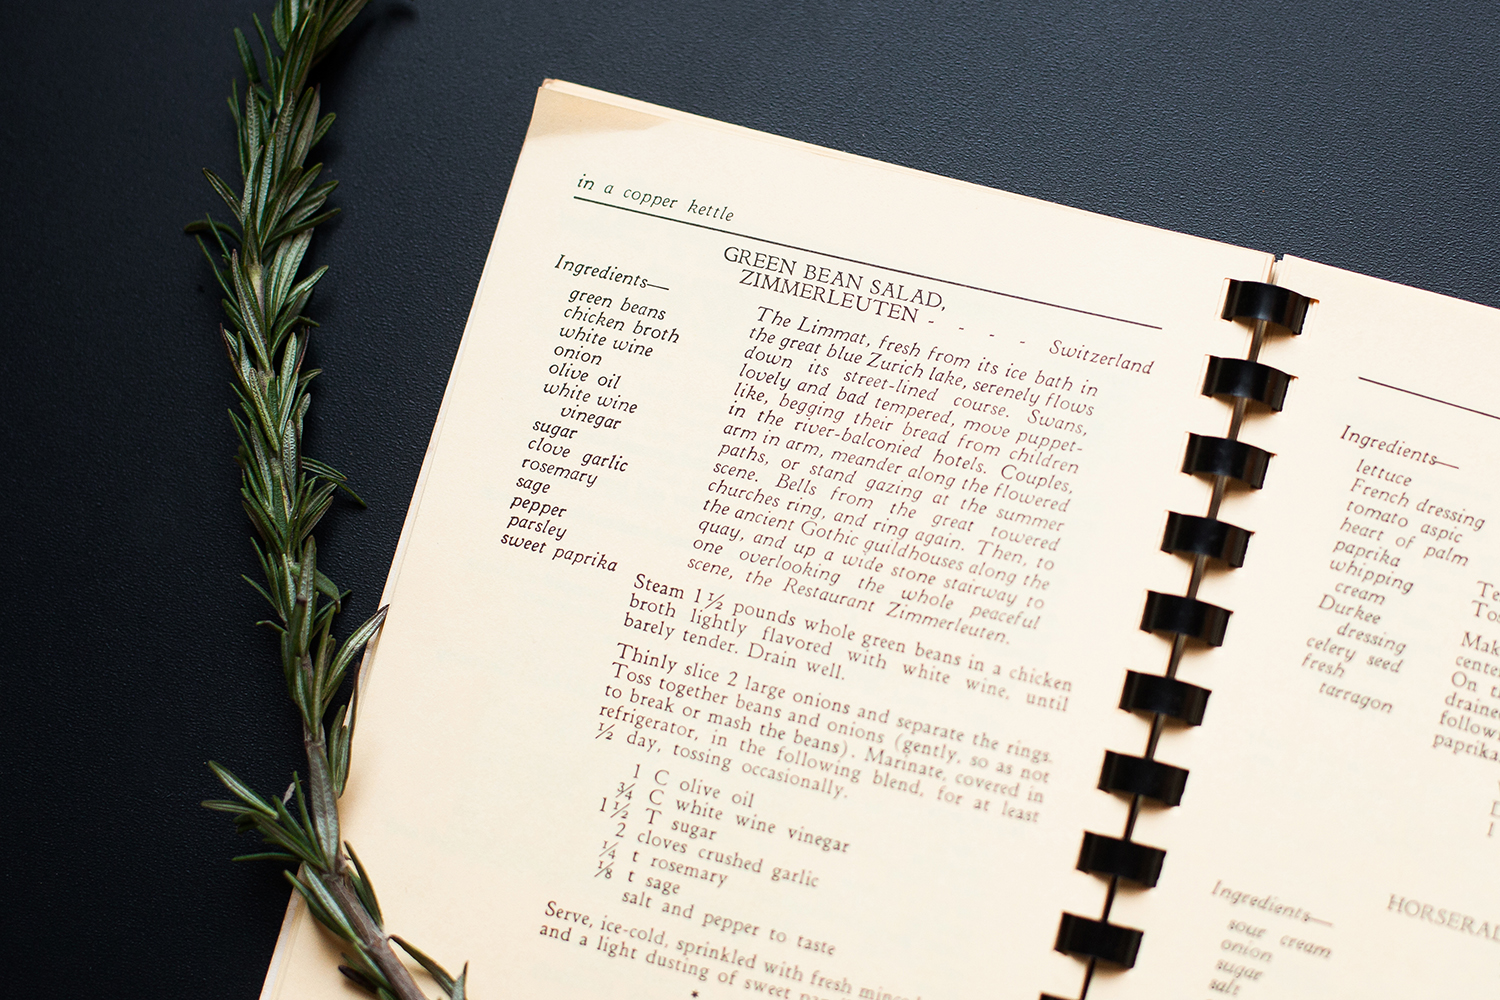 in a copper kettle
GREEN BEAN SALAD,
ZIMMERLEUTEN - - - - Switzerland
Ingredients—
green beans
chicken broth
white wine
onion
olive oil
white wine
vinegar
sugar
clove garlic
rosemary
sage
pepper
parsley
sweet paprika
The Limmat, fresh from its ice bath in
the great blue Zurich lake, serenely flows
down its street-lined course. Swans,
lovely and bad tempered, move puppet-
like, begging their bread from children
in the river-balconied hotels. Couples,
arm in arm, meander along the flowered
paths, or stand gazing at the summer
scene. Bells from the great towered
churches ring, and ring again. Then, to
the ancient Gothic guildhouses along the
quay, and up a wide stone stairway to
one overlooking the whole peaceful
scene, the Restaurant Zimmerleuten.
Steam 1 ½ pounds whole green beans in a chicken
broth lightly flavored with white wine, until
barely tender. Drain well.
Thinly slice 2 large onions and separate the rings.
Toss together beans and onions (gently, so as not
to break or mash the beans). Marinate, covered in
refrigerator, in the following blend, for at least
½ day, tossing occasionally.
1 C olive oil
¾ C white wine vinegar
1 ½ T sugar
2 cloves crushed garlic
¼ t rosemary
⅛ t sage
salt and pepper to taste
Serve, ice-cold, sprinkled with fresh
and a light dusting of sweet
Ingredients—
lettuce
French dressing
tomato aspic
heart of palm
paprika
whipping
cream
Durkee
dressing
celery seed
fresh
tarragon
On
Ingredients—
sour cream
onion
sugar
salt